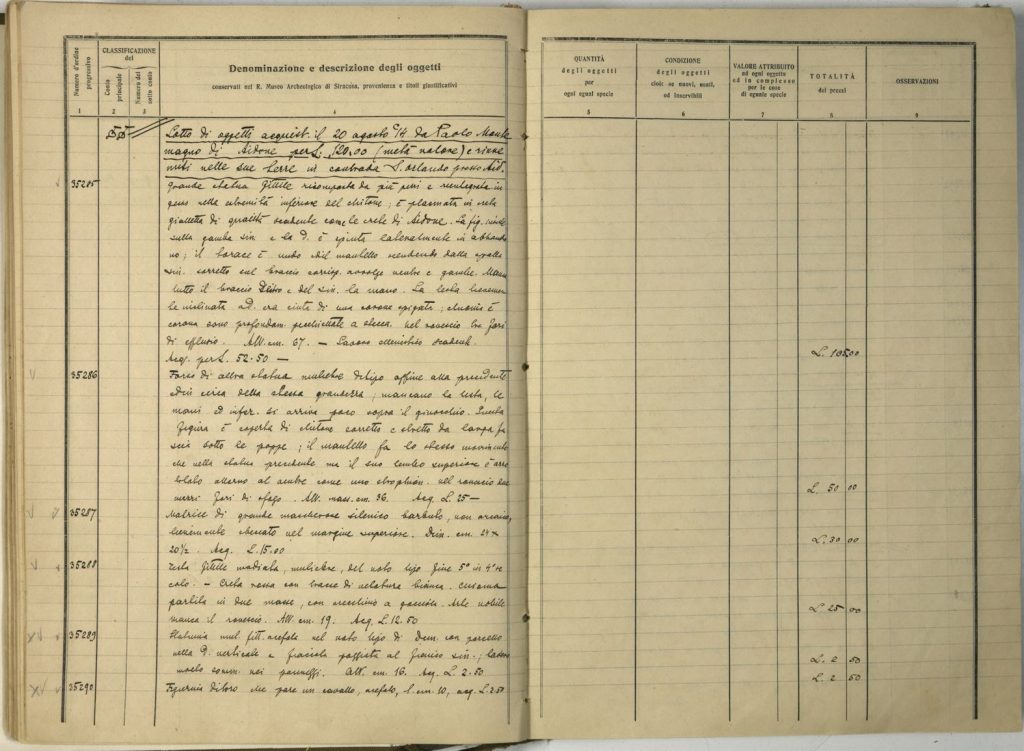 Numero d'ordine progressivo
CLASSIFICAZIONE del
Conto principale
Numero del sotto conto
Denominazione e descrizione degli oggetti
conservati nel R. Museo Archeologico di Siracusa, provenienza e titoli giustificativi
1
2
3
4
QUANTITÀ degli oggetti per ogni egual specie
CONDIZIONE degli oggetti cioè: se nuovi, usati, od inservibili
VALORE ATTRIBUITO ad ogni oggetto ed in complesso per le cose di eguale specie
TOTALITÀ dei prezzi
OSSERVAZIONI
5
6
7
8
9
Lotto di oggetti acquist. il 20 agosto 914 da Paolo Monte
magno di Aidone per L. 120.00 (metà valore) e rinve
nuti nelle sue terre in contrada S. Orlando presso Aid.
35285
Grande statua fittile ricomposta da più pezzi e reintegrata in
gesso nella estremità inferiore del chitone; è plasmata in creta
gialletta di qualità scadente come le crete di Aidone. La fig. insiste
sulla gamba sin. e la D. è spinta lateralmente in abbando
no; il torace è nudo ed il mantello scendendo dalla spalla
sin. sorretto sul braccio corrisp. avvolge ventre e gambe. Manca
tutto il braccio destro e del sin. la mano. La testa lievemen
te inclinata a D. era cinta di una corona; chioma e
corona sono profondam. a stecca. Nel rovescio tre fori
di efflusso. Alt. cm. 67. — Lavoro ellenistico scadente.
Acq. per L. 52.50 —
L. 105.00
35286
Torso di altra statua muliebre di tipo affine alla precedente
ed in circa della stessa grandezza; mancano la testa, le
mani ed infer. si arriva poco sopra il ginocchio. Questa
figura è coperta di chitone corretto e stretto da larga fa
scia sotto le poppe; il mantello fa lo stesso movimento
che nella statua precedente ma il suo lembo superiore è arro
tolato attorno al ventre come uno strophion. Nel rovescio due
fori di sfogo. Alt. mass. cm. 36. Acq. L. 25 —
L. 50 00
35287
Matrice di grande mascherone silenico barbuto, non arcaico,
lievemente sbeccato nel margine superiore. Dim. cm. 24 x
20 1/2. Acq. L. 15.00
L. 30 00
35288
Testa fittile modiata, muliebre, del noto tipo fine 5° in 4° se
colo. — Creta rossa con tracce di velatura bianca. Chioma
partita in due masse, con orecchino a gocciole. Arte nobile
manca il rovescio. Alt. cm. 19. Acq. L. 12.50
L. 25 00
35289
Statuina mul. fitt. acefala nel noto tipo di Dem. con porcello
nella D. verticale e fiaccola poggiata al sin.; lavoro
molto somm. nei panneggi. Alt. cm. 16. Acq. L. 2.50
L. 2 50
35290
Figurina di toro che pare un cavallo, acefalo, l. cm. 10, acq. L. 2.50
L. 2 50